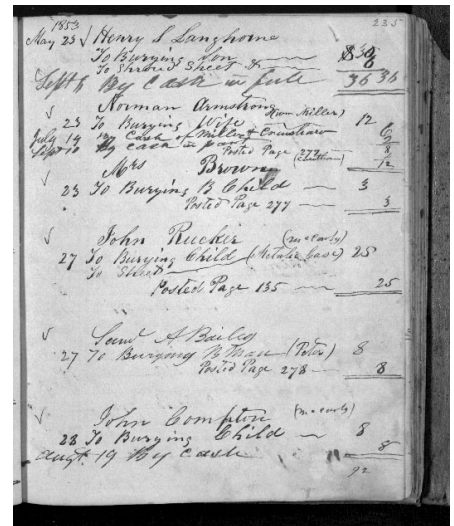 1853 235
May 23 √ Henry S Langhorne
To Burying Son $30
To Shroud Sheet & 6
Sept 6 By Cash in full 36 36
√ Norman Armstrong (from Miller)
23 To Burying Wife 12
July 14 By Cash of Miller & Crenshaw 6
Sept 10 By Cash in part
Posted Page 277 12
√ Mrs Brown
23 To Burying B Child 3
Posted Page 277 3
√ John Rucker (mc early)
27 To Burying Child (Metalic Case) 25
To Sheet
Posted Page 135 25
√ Saml A Bailey
27 To Burying B Man (Peter) 8
Posted Page 278 8
√ John Compton (mc early)
28 To Burying Child 8
Augt 19 By Cash 8
92